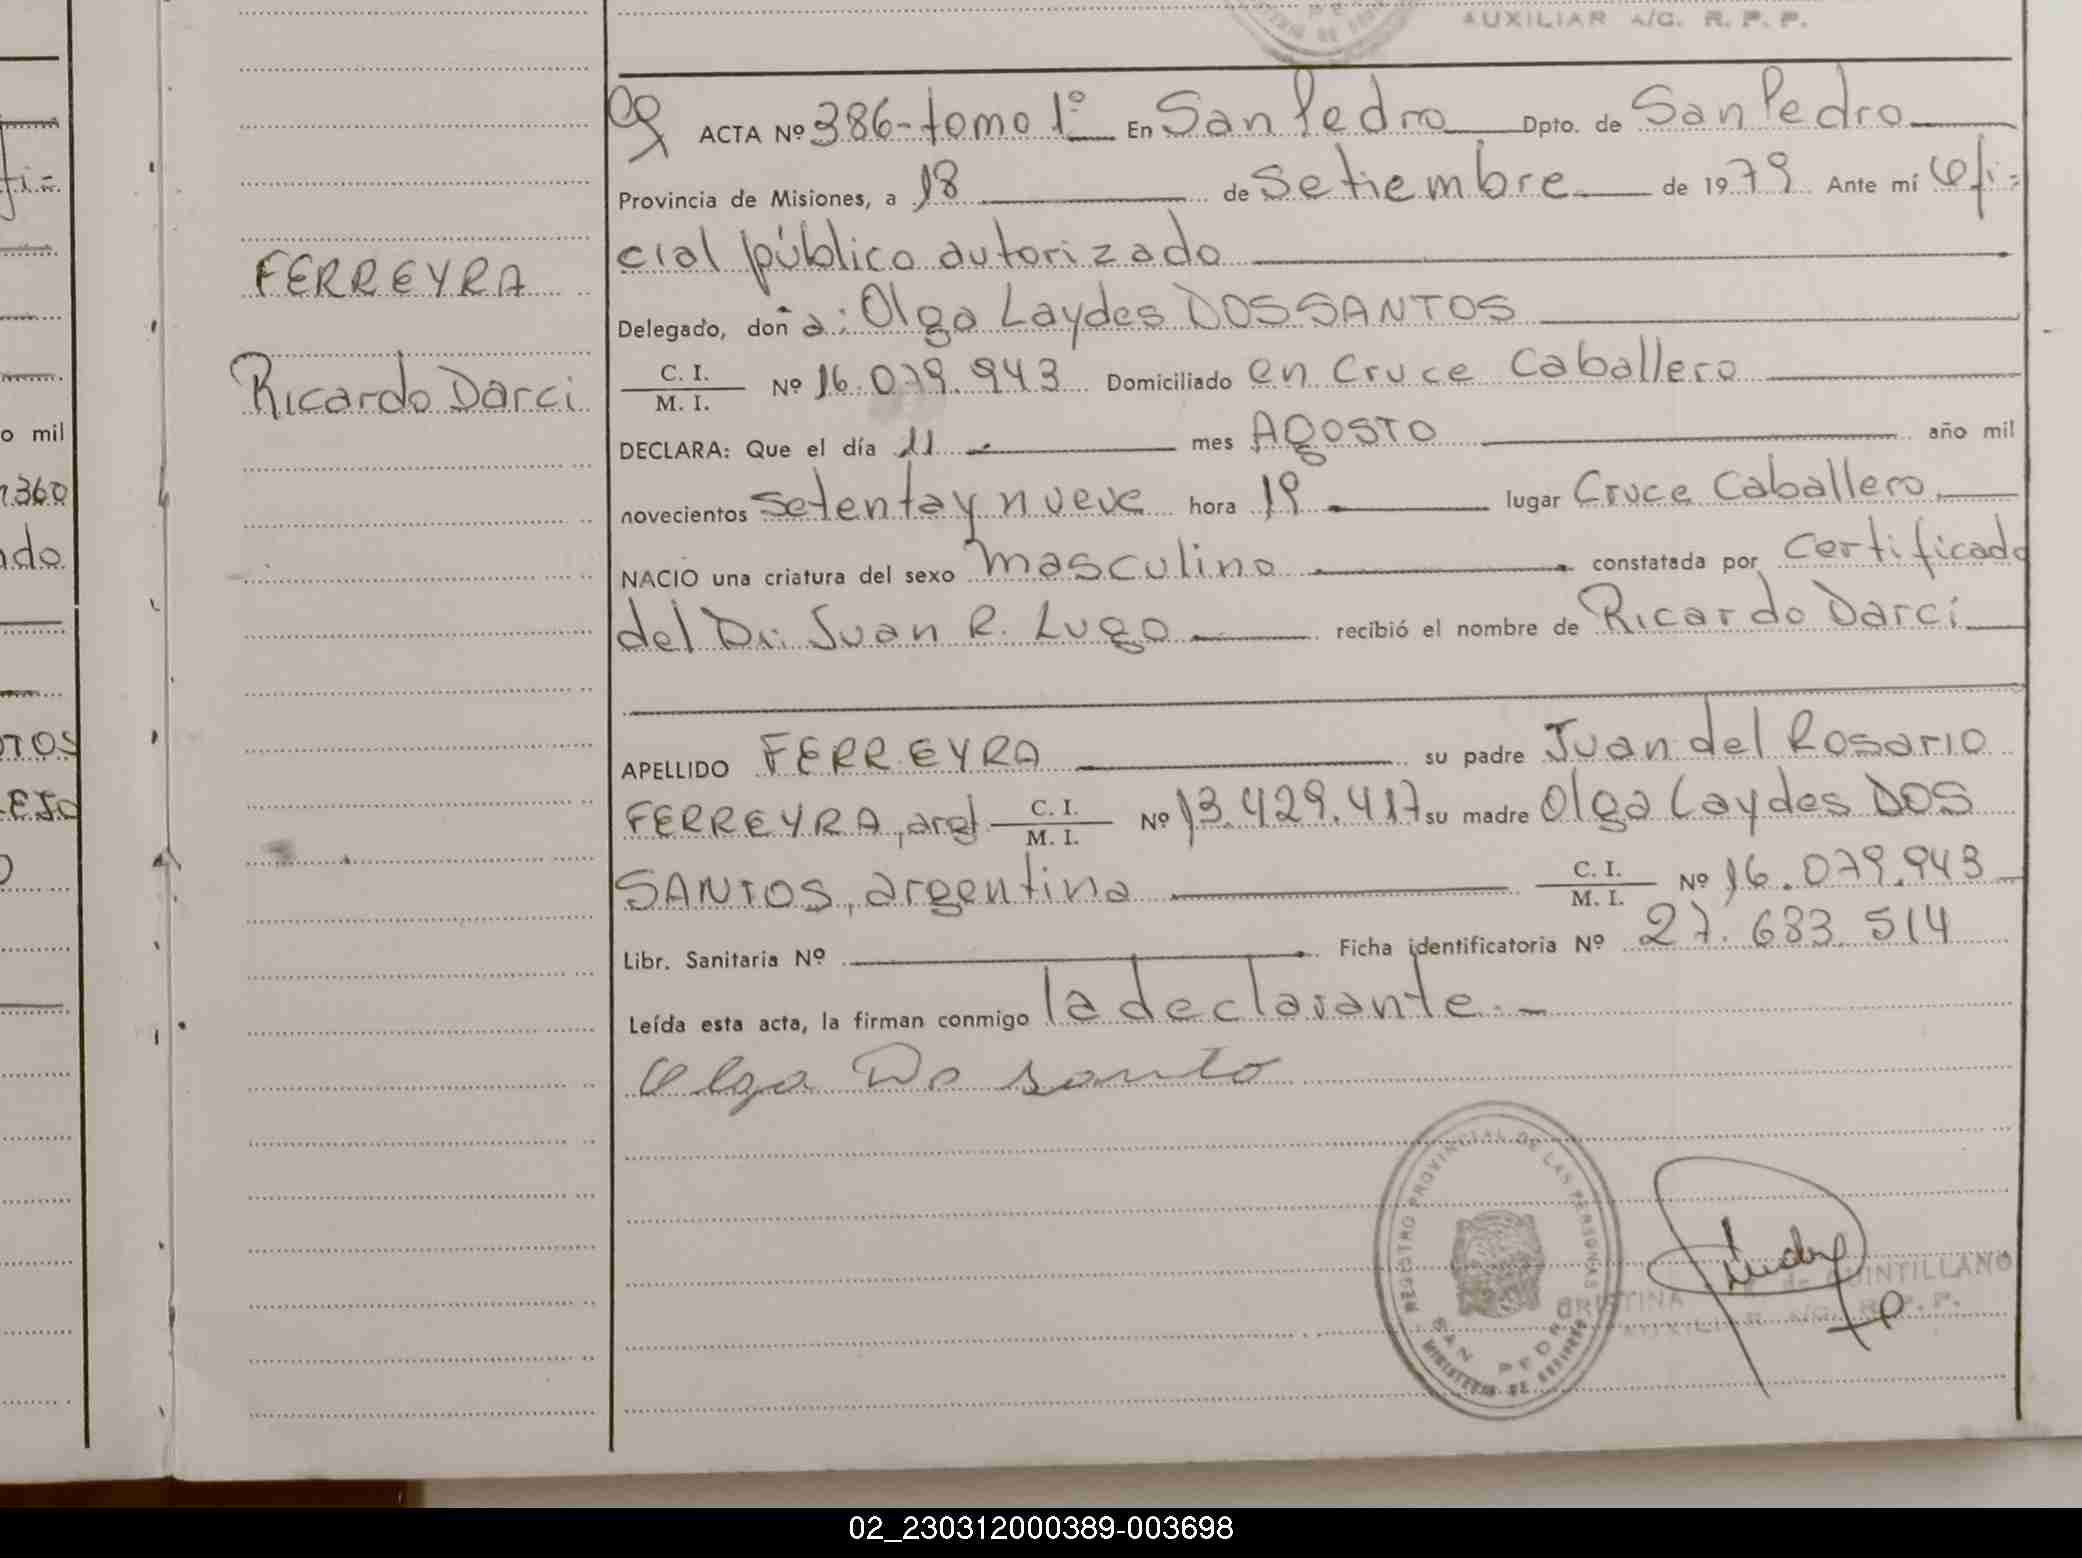 AUXILIAR A/C. R. P. P.
ACTA Nº 386-tomo 1º En San Pedro Dpto. de San Pedro
Provincia de Misiones, a 18 de Setiembre de 1979 Ante mí Ofi-
cial público autorizado
FERREYRA
Delegado, doña: Olga Laydes DOS SANTOS
Ricardo Darci
C. I.
M. I. Nº 16.079.943 Domiciliado en Cruce Caballero
o mil
DECLARA: Que el día 11 mes AGOSTO año mil
360
novecientos setenta y nueve hora 19 lugar Cruce Caballero
NACIO una criatura del sexo masculino constatada por certificado
del Dr: Juan R. Lugo recibió el nombre de Ricardo Darci
APELLIDO FERREYRA su padre Juan del Rosario
FERREYRA, arg C. I. M. I. Nº 13.429.417 su madre Olga Laydes DOS
SANTOS, argentina C. I. M. I. Nº 16.079.943
Libr. Sanitaria Nº Ficha identificatoria Nº 27.683.514
Leída esta acta, la firman conmigo la declarante.-
Olga Do santo
REGISTRO PROVINCIAL DE LAS PERSONAS
SAN PEDRO
MINISTERIO DE GOBIERNO
CRISTINA de QUINTILLANO
AUXILIAR A/C. R. P. P.
02_230312000389-003698